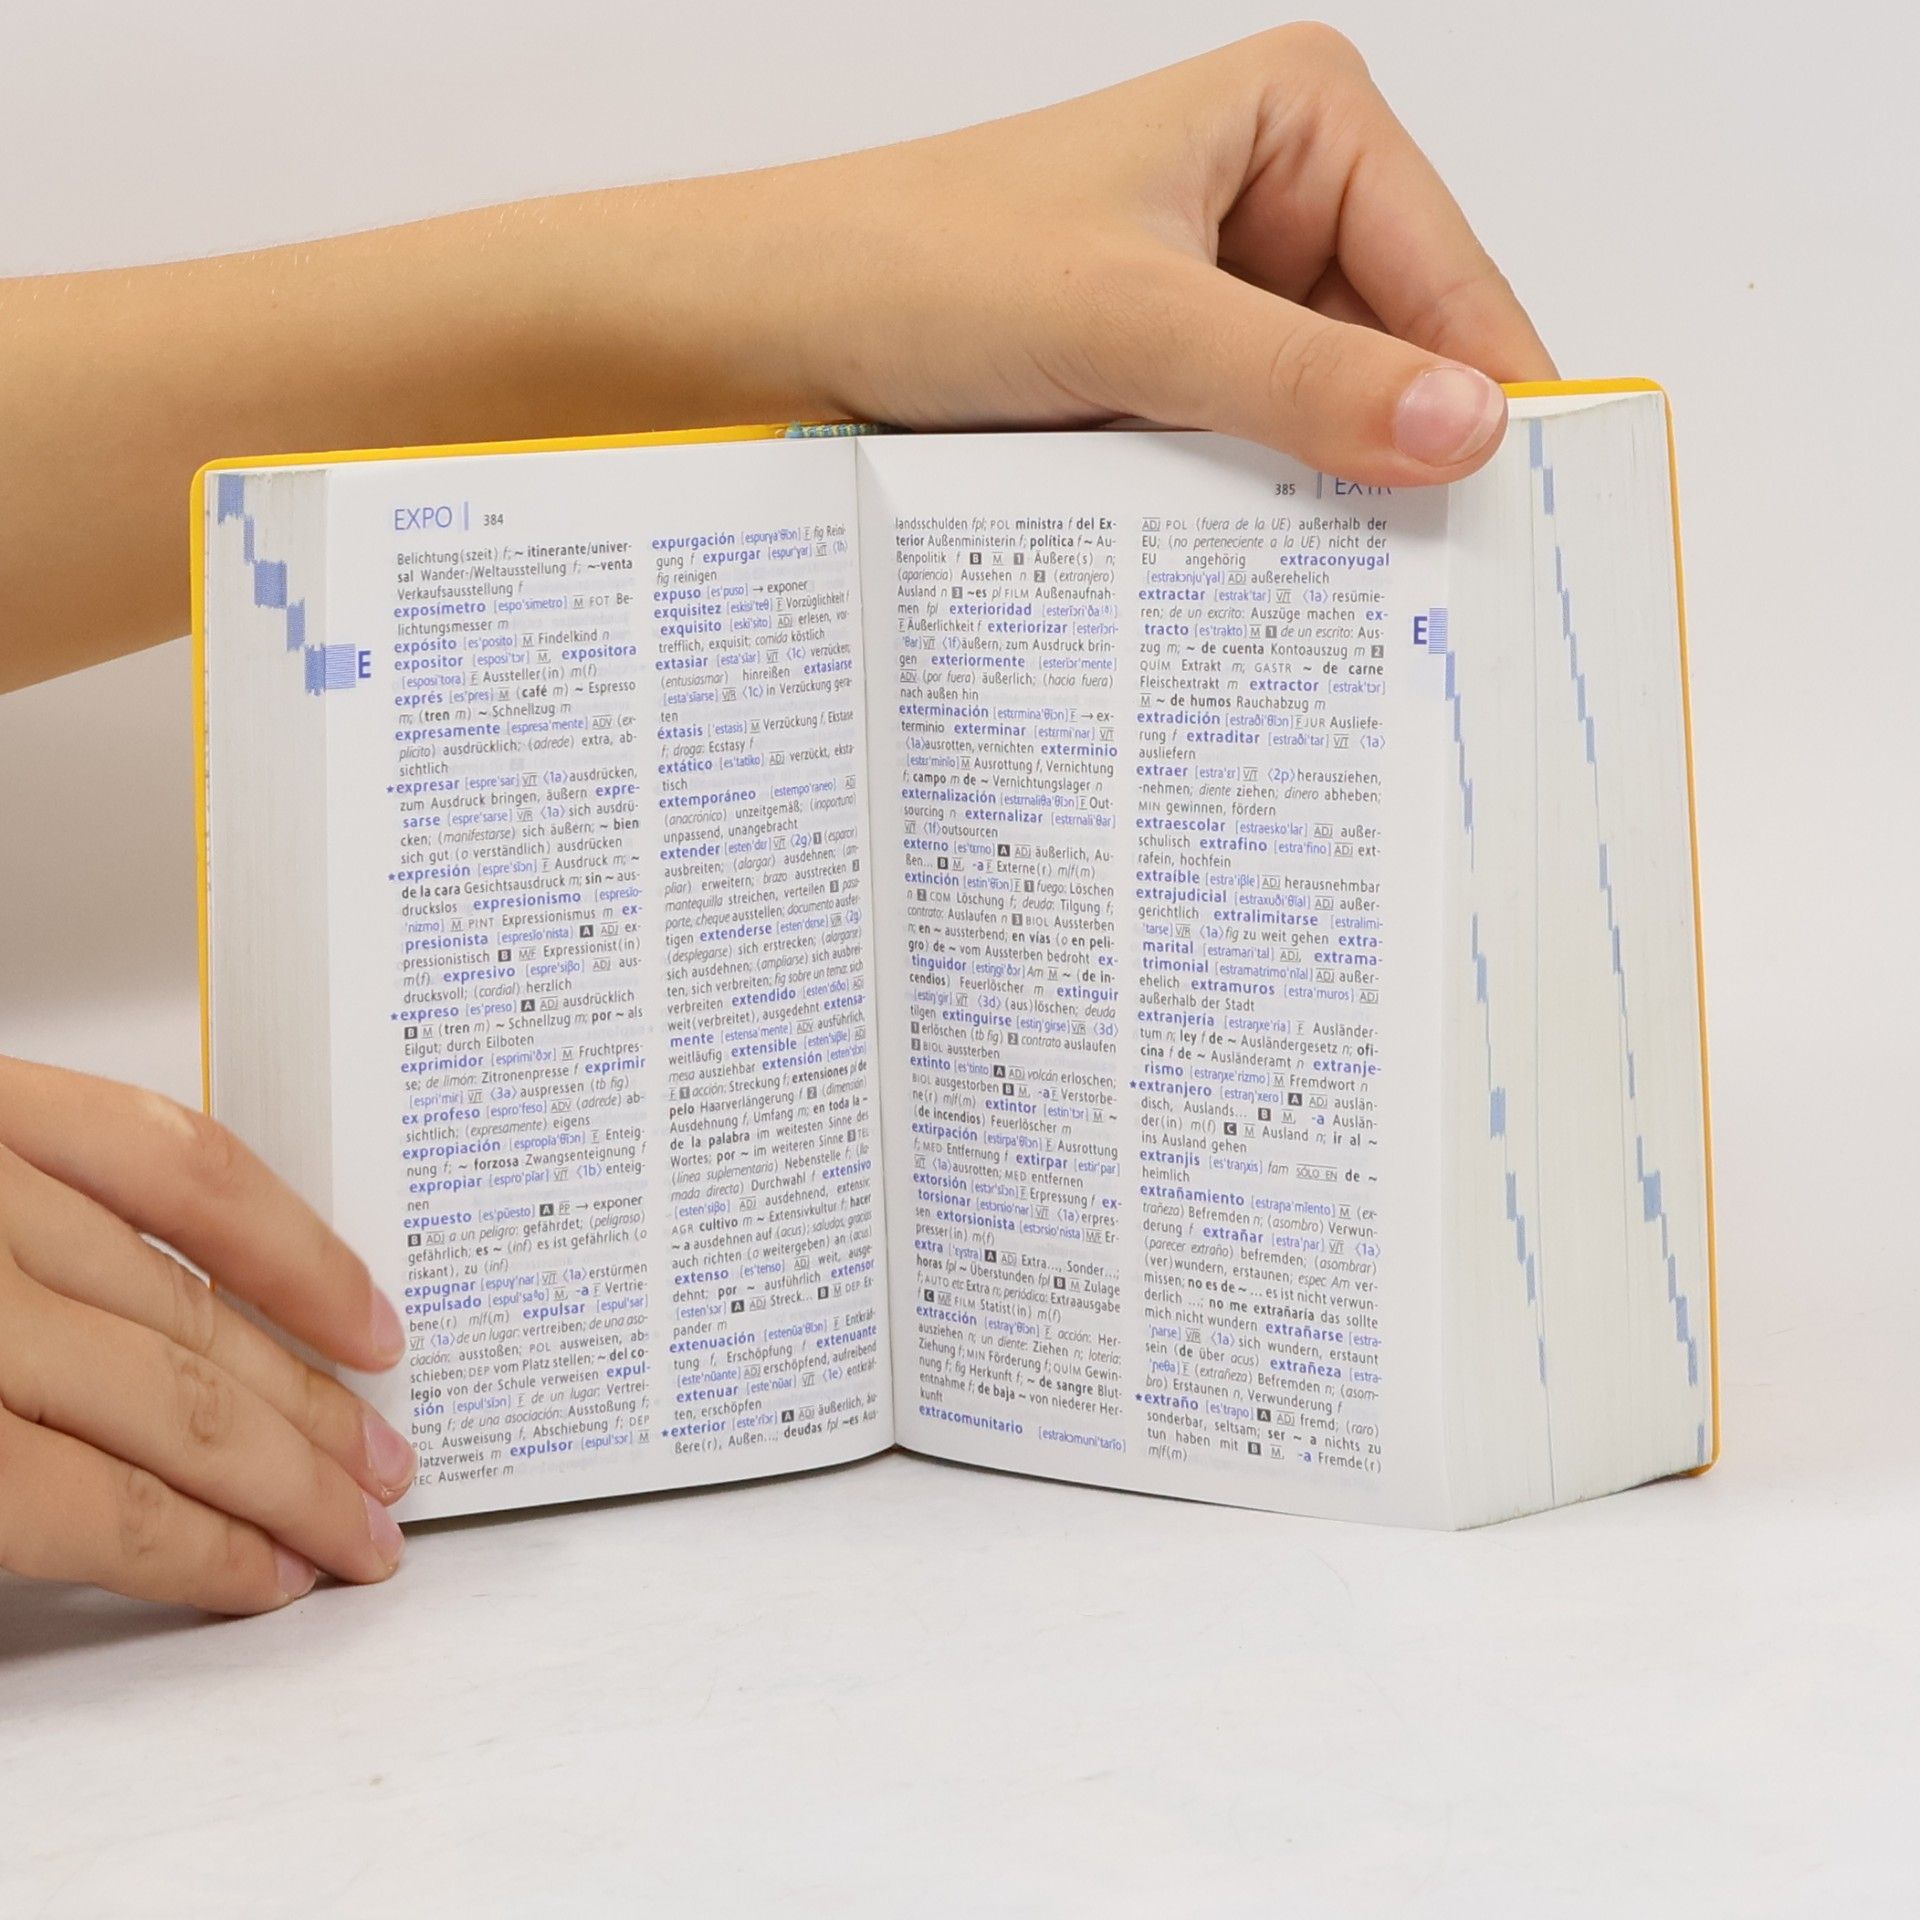 EXPO | 384
Belichtung(szeit) f; ~ itinerante/univer-
sal Wander-/Weltausstellung f; ~-venta
Verkaufsausstellung f
exposímetro [espo'simetro] M FOT Be-
lichtungsmesser m
expósito [es'posito] M Findelkind n
expositor [esposi'tɔr] M, expositora
[esposi'tora] F Aussteller(in) m(f)
exprés [es'pres] M (café m) ~ Espresso
m; (tren m) ~ Schnellzug m
expresamente [espresa'mente] ADV (ex-
plícito) ausdrücklich; (adrede) extra, ab-
sichtlich
★expresar [espre'sar] V/T ⟨1a⟩ ausdrücken,
zum Ausdruck bringen, äußern expre-
sarse [espre'sarse] V/R ⟨1a⟩ sich ausdrü-
cken; (manifestarse) sich äußern; ~ bien
sich gut (o verständlich) ausdrücken
★expresión [espre'sĭɔn] F Ausdruck m; ~
de la cara Gesichtsausdruck m; sin ~ aus-
druckslos expresionismo [espresĭo-
'nizmo] M PINT Expressionismus m ex-
presionista [espresĭo'nista] A ADJ ex-
pressionistisch B M/F Expressionist(in)
m(f) expresivo [espre'siβo] ADJ aus-
drucksvoll; (cordial) herzlich
★expreso [es'preso] A ADJ ausdrücklich
B M (tren m) ~ Schnellzug m; por ~ als
Eilgut; durch Eilboten
exprimidor [esprimi'ðɔr] M Fruchtpres-
se; de limón: Zitronenpresse f exprimir
[espri'mir] V/T ⟨3a⟩ auspressen (tb fig)
ex profeso [espro'feso] ADV (adrede) ab-
sichtlich; (expresamente) eigens
expropiación [espropĭa'θĭɔn] F Enteig-
nung f; ~ forzosa Zwangsenteignung f
expropiar [espro'pĭar] V/T ⟨1b⟩ enteig-
nen
expuesto [es'pŭesto] A PP → exponer
B ADJ a un peligro: gefährdet; (peligroso)
gefährlich; es ~ (inf) es ist gefährlich (o
riskant), zu (inf)
expugnar [espuɣ'nar] V/T ⟨1a⟩ erstürmen
expulsado [espul'saðo] M, -a F Vertrie-
bene(r) m/f(m) expulsar [espul'sar]
V/T ⟨1a⟩ de un lugar: vertreiben; de una aso-
ciación: ausstoßen; POL ausweisen, ab-
schieben; DEP vom Platz stellen; ~ del co-
legio von der Schule verweisen expul-
sión [espul'sĭɔn] F de un lugar: Vertrei-
bung f; de una asociación: Ausstoßung f;
POL Ausweisung f, Abschiebung f; DEP
latzverweis m expulsor [espul'sɔr] M
TEC Auswerfer m
expurgación [espurɣa'θĭɔn] F fig Reini-
gung f expurgar [espur'ɣar] V/T ⟨1h⟩
fig reinigen
expuso [es'puso] → exponer
exquisitez [eskisi'teθ] F Vorzüglichkeit f
exquisito [eski'sito] ADJ erlesen, vor-
trefflich, exquisit; comida köstlich
extasiar [esta'sĭar] V/T ⟨1c⟩ verzücken;
(entusiasmar) hinreißen extasiarse
[esta'sĭarse] V/R ⟨1c⟩ in Verzückung gera-
ten
éxtasis ['estasis] M Verzückung f, Ekstase
f; droga: Ecstasy f
extático [es'tatiko] ADJ verzückt, eksta-
tisch
extemporáneo [estempo'raneo] ADJ
(anacrónico) unzeitgemäß; (inoportuno)
unpassend, unangebracht
extender [esten'dɛr] V/T ⟨2g⟩ 1 (esparcir)
ausbreiten; (alargar) ausdehnen; (am-
pliar) erweitern; brazo ausstrecken 2
mantequilla streichen, verteilen 3 pasa-
porte, cheque ausstellen; documento ausfer-
tigen extenderse [esten'dɛrse] V/R ⟨2g⟩
(desplegarse) sich erstrecken; (alargarse)
sich ausdehnen; (ampliarse) sich ausbrei-
ten, sich verbreiten; fig sobre un tema: sich
verbreiten extendido [esten'diðo] ADJ
weit (verbreitet), ausgedehnt extensa-
mente [estensa'mente] ADV ausführlich,
weitläufig extensible [esten'siβle] ADJ
mesa ausziehbar extensión [esten'sĭɔn]
F 1 acción: Streckung f; extensiones pl de
pelo Haarverlängerung f 2 (dimensión)
Ausdehnung f, Umfang m; en toda la ~
de la palabra im weitesten Sinne des
Wortes; por ~ im weiteren Sinne 3 TEL
(línea suplementaria) Nebenstelle f; (lla-
mada directa) Durchwahl f extensivo
[esten'siβo] ADJ ausdehnend, extensiv;
AGR cultivo m ~ Extensivkultur f; hacer
~ a ausdehnen auf (acus); saludos, gracias
auch richten (o weitergeben) an (acus)
extenso [es'tenso] ADJ weit, ausge-
dehnt; por ~ ausführlich extensor
[esten'sɔr] A ADJ Streck... B M DEP Ex-
pander m
extenuación [estenŭa'θĭɔn] F Entkräf-
tung f, Erschöpfung f extenuante
[este'nŭante] ADJ erschöpfend, aufreibend
extenuar [este'nŭar] V/T ⟨1e⟩ entkräf-
ten, erschöpfen
★exterior [este'rĭɔr] A ADJ äußerlich, äu-
ßere(r), Außen...; deudas fpl ~es Aus-
385 |
landsschulden fpl; POL ministra f del Ex-
terior Außenministerin f; política f ~ Au-
ßenpolitik f B M 1 Äußere(s) n;
(apariencia) Aussehen n 2 (extranjero)
Ausland n 3 ~es pl FILM Außenaufnah-
men fpl exterioridad [esterĭori'ða(ð)]
F Äußerlichkeit f exteriorizar [esterĭori-
'θar] V/T ⟨1f⟩ äußern, zum Ausdruck brin-
gen exteriormente [esterĭɔr'mente]
ADV (por fuera) äußerlich; (hacia fuera)
nach außen hin
exterminación [estɛrmina'θĭɔn] F → ex-
terminio exterminar [estɛrmi'nar] V/T
⟨1a⟩ ausrotten, vernichten exterminio
[estɛr'minĭo] M Ausrottung f, Vernichtung
f; campo m de ~ Vernichtungslager n
externalización [estɛrnaliθa'θĭɔn] F Out-
sourcing n externalizar [estɛrnali'θar]
V/T ⟨1f⟩ outsourcen
externo [es'tɛrno] A ADJ äußerlich, Au-
ßen... B M, -a F Externe(r) m/f(m)
extinción [estin'θĭɔn] F 1 fuego: Löschen
n 2 COM Löschung f; deuda: Tilgung f;
contrato: Auslaufen n 3 BIOL Aussterben
n; en ~ aussterbend; en vías (o en peli-
gro) de ~ vom Aussterben bedroht ex-
tinguidor [estiŋgi'ðɔr] Am M ~ (de in-
cendios) Feuerlöscher m extinguir
[estiŋ'gir] V/T ⟨3d⟩ (aus)löschen; deuda
tilgen extinguirse [estiŋ'girse] V/R ⟨3d⟩
1 erlöschen (tb fig) 2 contrato auslaufen
3 BIOL aussterben
extinto [es'tinto] A ADJ volcán erloschen;
BIOL ausgestorben B M, -a F Verstorbe-
ne(r) m/f(m) extintor [estin'tɔr] M ~
(de incendios) Feuerlöscher m
extirpación [estirpa'θĭɔn] F Ausrottung
f; MED Entfernung f extirpar [estir'par]
V/T ⟨1a⟩ ausrotten; MED entfernen
extorsión [estɔr'sĭɔn] F Erpressung f ex-
torsionar [estɔrsĭo'nar] V/T ⟨1a⟩ erpres-
sen extorsionista [estɔrsĭo'nista] M/F Er-
presser(in) m(f)
extra ['eɣstra] A ADJ Extra..., Sonder...;
horas fpl ~ Überstunden fpl B M Zulage
f; AUTO etc Extra n; periódico: Extraausgabe
f C M/F FILM Statist(in) m(f)
extracción [estraɣ'θĭɔn] F acción: Her-
ausziehen n; un diente: Ziehen n; lotería:
Ziehung f; MIN Förderung f; QUÍM Gewin-
nung f; fig Herkunft f; ~ de sangre Blut-
entnahme f; de baja ~ von niederer Her-
kunft
extracomunitario [estrakɔmuni'tarĭo]
ADJ POL (fuera de la UE) außerhalb der
EU; (no perteneciente a la UE) nicht der
EU angehörig extraconyugal
[estrakɔnju'ɣal] ADJ außerehelich
extractar [estrak'tar] V/T ⟨1a⟩ resümie-
ren; de un escrito: Auszüge machen ex-
tracto [es'trakto] M 1 de un escrito: Aus-
zug m; ~ de cuenta Kontoauszug m 2
QUÍM Extrakt m; GASTR ~ de carne
Fleischextrakt m extractor [estrak'tɔr]
M ~ de humos Rauchabzug m
extradición [estraði'θĭɔn] F JUR Ausliefe-
rung f extraditar [estraði'tar] V/T ⟨1a⟩
ausliefern
extraer [estra'ɛr] V/T ⟨2p⟩ herausziehen,
-nehmen; diente ziehen; dinero abheben;
MIN gewinnen, fördern
extraescolar [estraesko'lar] ADJ außer-
schulisch extrafino [estra'fino] ADJ ext-
rafein, hochfein
extraíble [estra'iβle] ADJ herausnehmbar
extrajudicial [estraxuði'θĭal] ADJ außer-
gerichtlich extralimitarse [estralimi-
'tarse] V/R ⟨1a⟩ fig zu weit gehen extra-
marital [estramari'tal] ADJ, extrama-
trimonial [estramatrimo'nĭal] ADJ außer-
ehelich extramuros [estra'muros] ADJ
außerhalb der Stadt
extranjería [estraŋxe'ria] F Ausländer-
tum n; ley f de ~ Ausländergesetz n; ofi-
cina f de ~ Ausländeramt n extranje-
rismo [estraŋxe'rizmo] M Fremdwort n
★extranjero [estraŋ'xero] A ADJ auslän-
disch, Auslands... B M, -a F Auslän-
der(in) m(f) C M Ausland n; ir al ~
ins Ausland gehen
extranjis [es'traŋxis] fam SÓLO EN de ~
heimlich
extrañamiento [estraɲa'mĭento] M (ex-
trañeza) Befremden n; (asombro) Verwun-
derung f extrañar [estra'ɲar] V/T ⟨1a⟩
(parecer extraño) befremden; (asombrar)
(ver)wundern, erstaunen; espec Am ver-
missen; no es de ~ ... es ist nicht verwun-
derlich ...; no me extrañaría das sollte
mich nicht wundern extrañarse [estra-
'ɲarse] V/R ⟨1a⟩ sich wundern, erstaunt
sein (de über acus) extrañeza [estra-
'ɲeθa] F (extrañeza) Befremden n; (asom-
bro) Erstaunen n, Verwunderung f
★extraño [es'traɲo] A ADJ fremd; (raro)
sonderbar, seltsam; ser ~ a nichts zu
tun haben mit B M, -a F Fremde(r)
m/f(m)
E
E